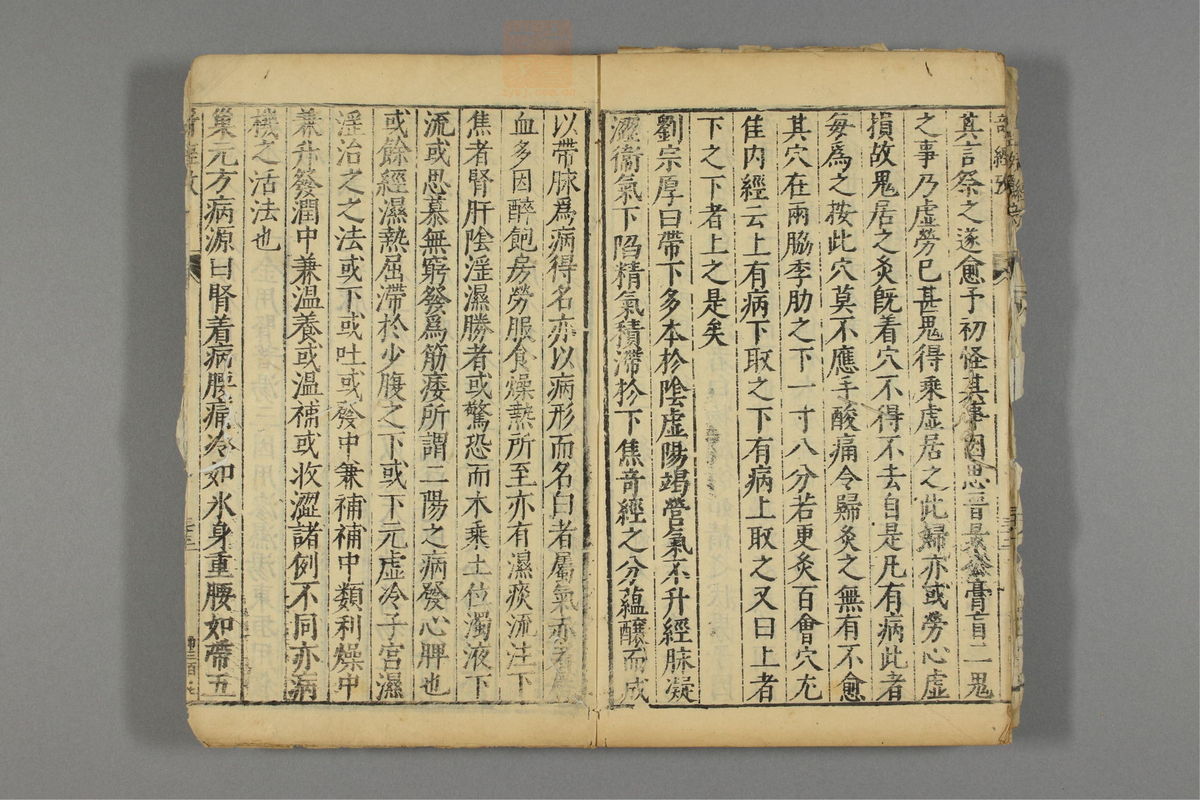 其言祭之遂愈予初怪其事因思晉景公膏肓二鬼
之事乃虛勞已甚鬼得乘虛居之此歸亦或勞心虛
損故鬼居之灸旣着穴不得不去自是凡有病此者
每爲之按此穴莫不應手酸痛令歸灸之無有不愈
其穴在兩脇季肋之下一寸八分若更灸百會穴尤
佳内經云上有病下取之下有病上取之又曰上者
下之下者上之是矣
劉宗厚曰帶下多本扵陰虛陽竭營氣不升經脉凝
澀衞氣下陷精氣積滯扵下焦竒經之分蘊釀而成
以帶脉爲病得名亦以病形而名白者屬氣赤者屬
血多因醉飽房勞服食燥熱所至亦有濕痰流注下
焦者腎肝陰淫濕勝者或驚恐而木乘土位濁液下
流或思慕無窮發爲筋痿所謂二陽之病發心脾也
或餘經濕熱屈滯於少腹之下或下元虛冷子宮濕
淫治之之法或下或吐或發中兼補補中類利燥中
兼升發潤中兼温養或温補或收澀諸例不同亦病
機之活法也
巢元方病源曰腎着病腰痛冷如氷身重腰如帶五